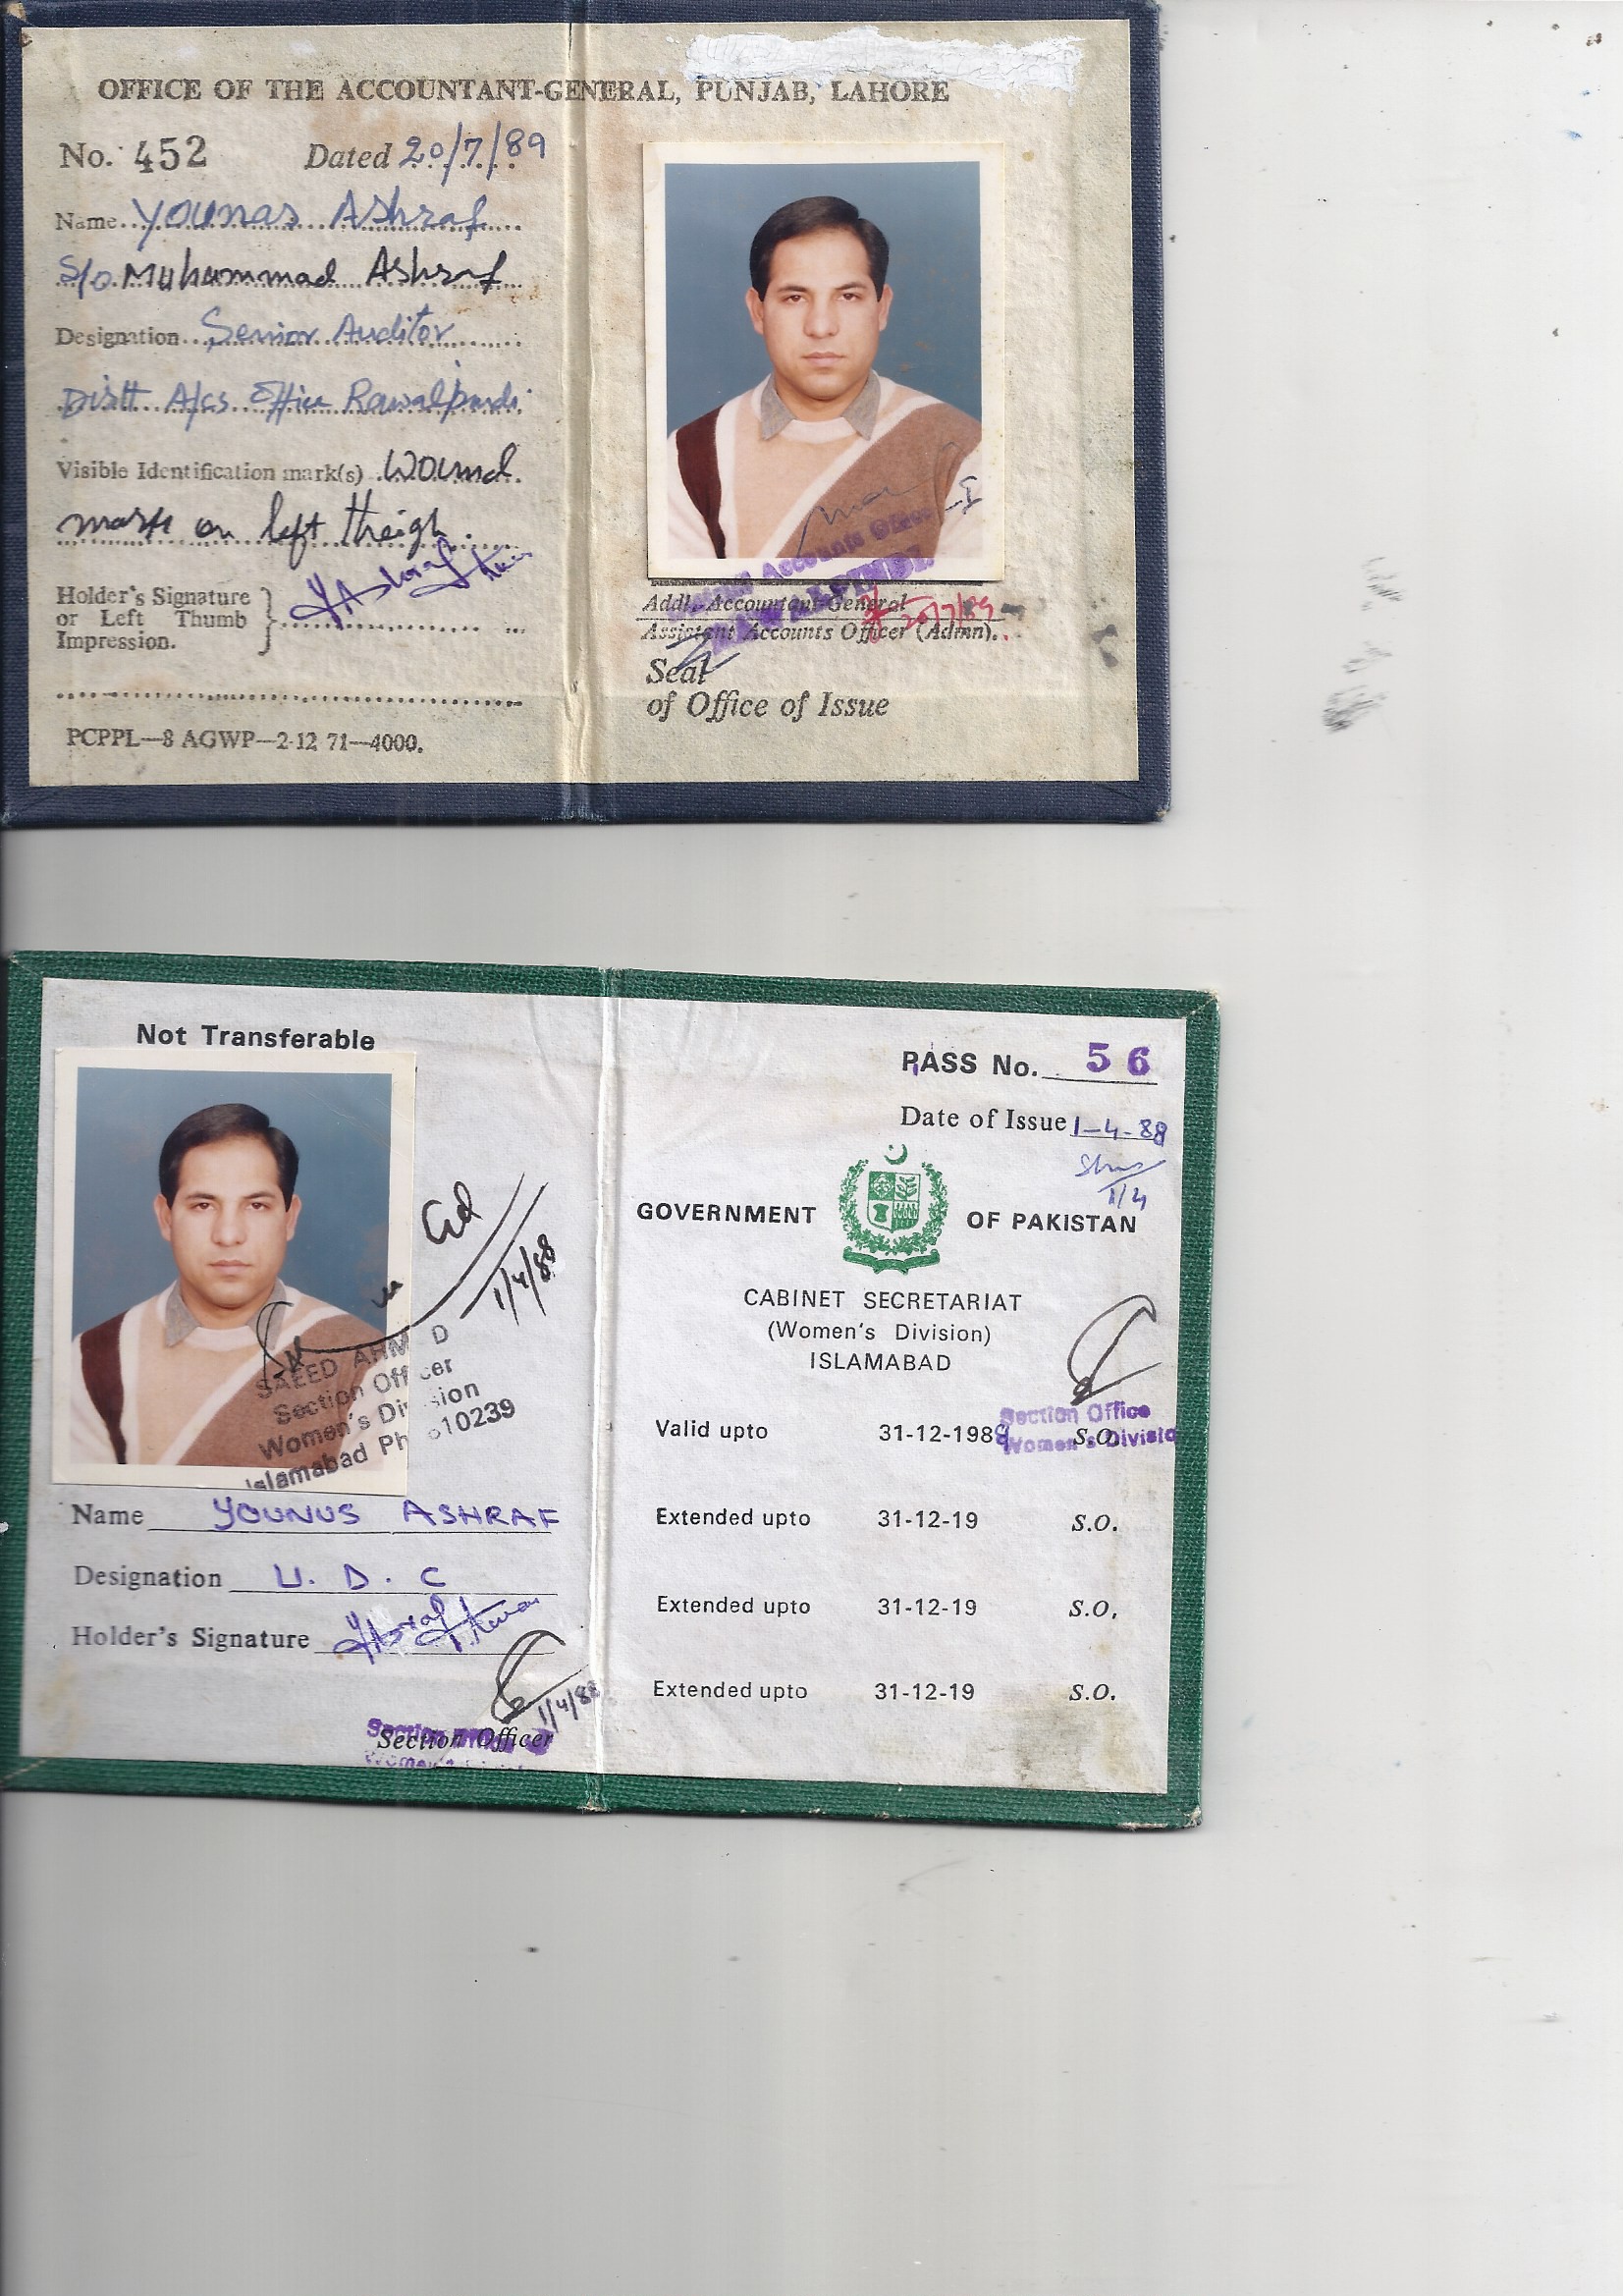 OFFICE OF THE ACCOUNTANT-GENERAL, PUNJAB, LAHORE
No. 452 Dated 20/7/89
Name Younas Ashraf
S/o Muhammad Ashraf
Designation Senior Auditor
Distt A/cs Office Rawalpindi
Visible Identification mark(s) Wound
mark on left theigh.
Holder's Signature
or Left Thumb
Impression.
PCPPL—8 AGWP—2-12 71—4000.
Accounts Office
RAWALPINDI
Addl. Accountant-General
20/7/89
Assistant Accounts Officer (Admn).
Seal
of Office of Issue
Not Transferable
1/4/88
SAEED AHM D
Section Officer
Women's Division
Islamabad Ph 10239
Name YOUNUS ASHRAF
Designation U. D. C
Holder's Signature
1/4/88
Section Officer
PASS No. 56
Date of Issue 1-4-88
1/4
GOVERNMENT OF PAKISTAN
CABINET SECRETARIAT
(Women's Division)
ISLAMABAD
Section Office
Valid upto 31-12-1988 S.O.
Women's Divisio
Extended upto 31-12-19 S.O.
Extended upto 31-12-19 S.O.
Extended upto 31-12-19 S.O.